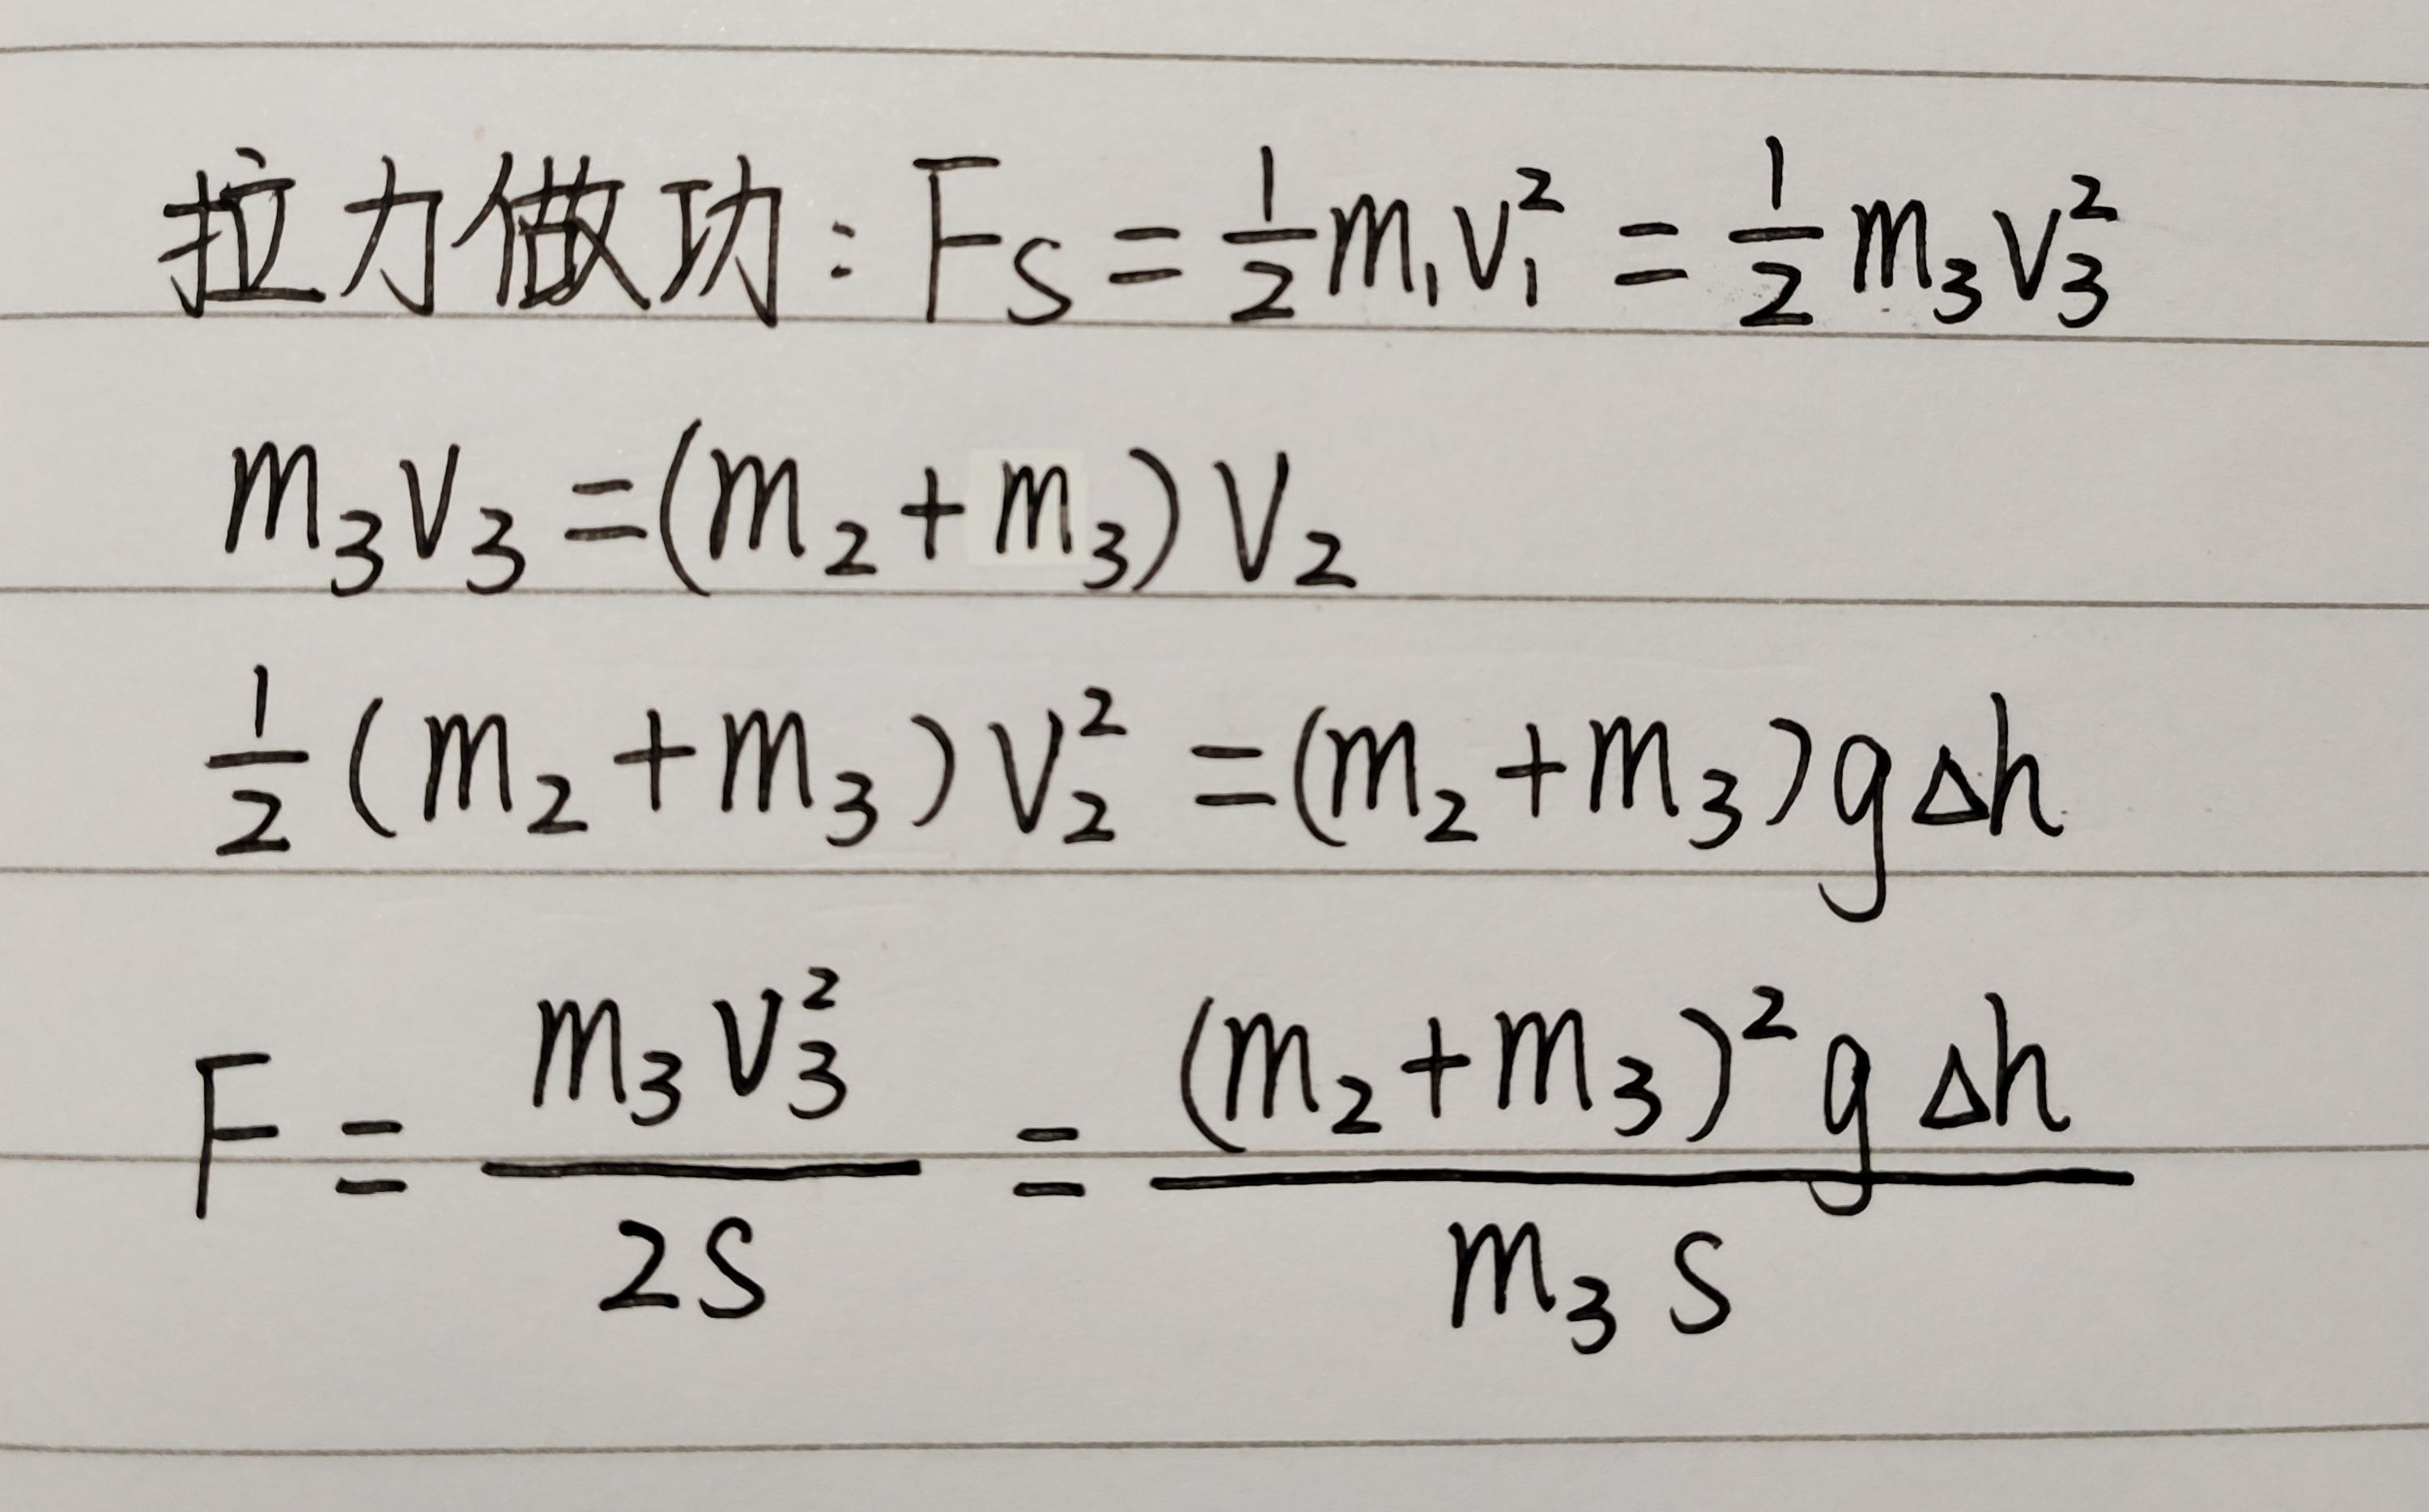 拉力做功: Fs = 1/2 m₁v₁² = 1/2 m₃v₃²
m₃v₃ = (m₂ + m₃) v₂
1/2 (m₂ + m₃) v₂² = (m₂ + m₃) g Δh
F = m₃v₃² / 2s = (m₂ + m₃)² g Δh / m₃ s